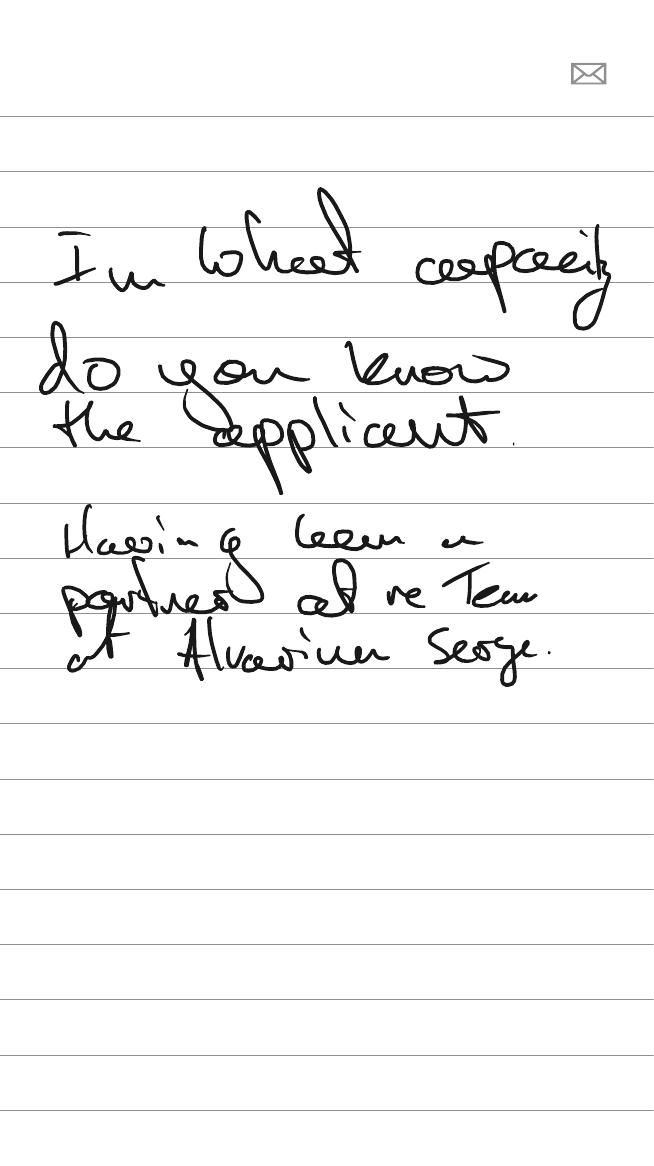 In what capacity
do you know
the applicant.
Having been a
partner at
at Alvarium